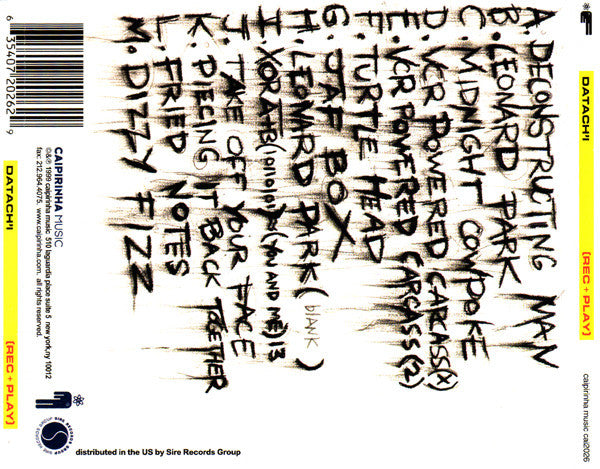 A. DECONSTRUCTING MAN
B. LEONARD PARK
C. MIDNIGHT COWPOKE
D. VCR POWERED CARCASS(X)
E. VCR POWERED CARCASS(2)
F. TURTLE HEAD
G. JAP BOX
H. LEONARD PARK (BLANK)
I. XOR A+B (YOU AND ME) 13
J. TAKE OFF YOUR FACE
K. PIECING IT BACK TOGETHER
L. FRIED NOTES
M. DIZZY FIZZ
6 35407 20262 9
CAIPIRINHA MUSIC
©&℗ 1999 caipirinha music 510 laguardia place suite 5 new york,ny 10012
fax: 212.964.4075. www.caipirinha.com. all rights reserved.
DATACH'I
[REC + PLAY]
DATACH'I
[REC + PLAY]
caipirinha music cai2026
SIRE RECORDS GROUP SIRE RECORDS GROUP
distributed in the US by Sire Records Group